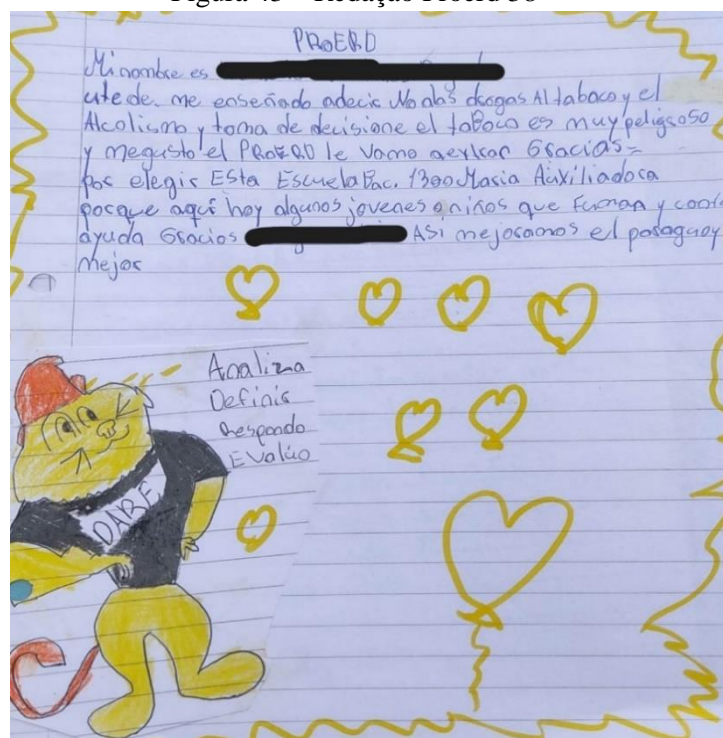 PROERD
Mi nombre es
utede. me enseñado adecir No alas drogas Al tabaco y el
Alcolismo y toma de decisione el tabaco es muy peligroso
y megusto el PROERD le Vamo Gracias=
por elegir Esta Escuela Bac. 1300 Maria Auxiliadora
porque aquí hay algunos jovenes o niños que Fuman y con
ayuda Gracias ASi mejoramos el paraguay
mejor
Analiza
Definir
Respondo
Evalúo
DARE